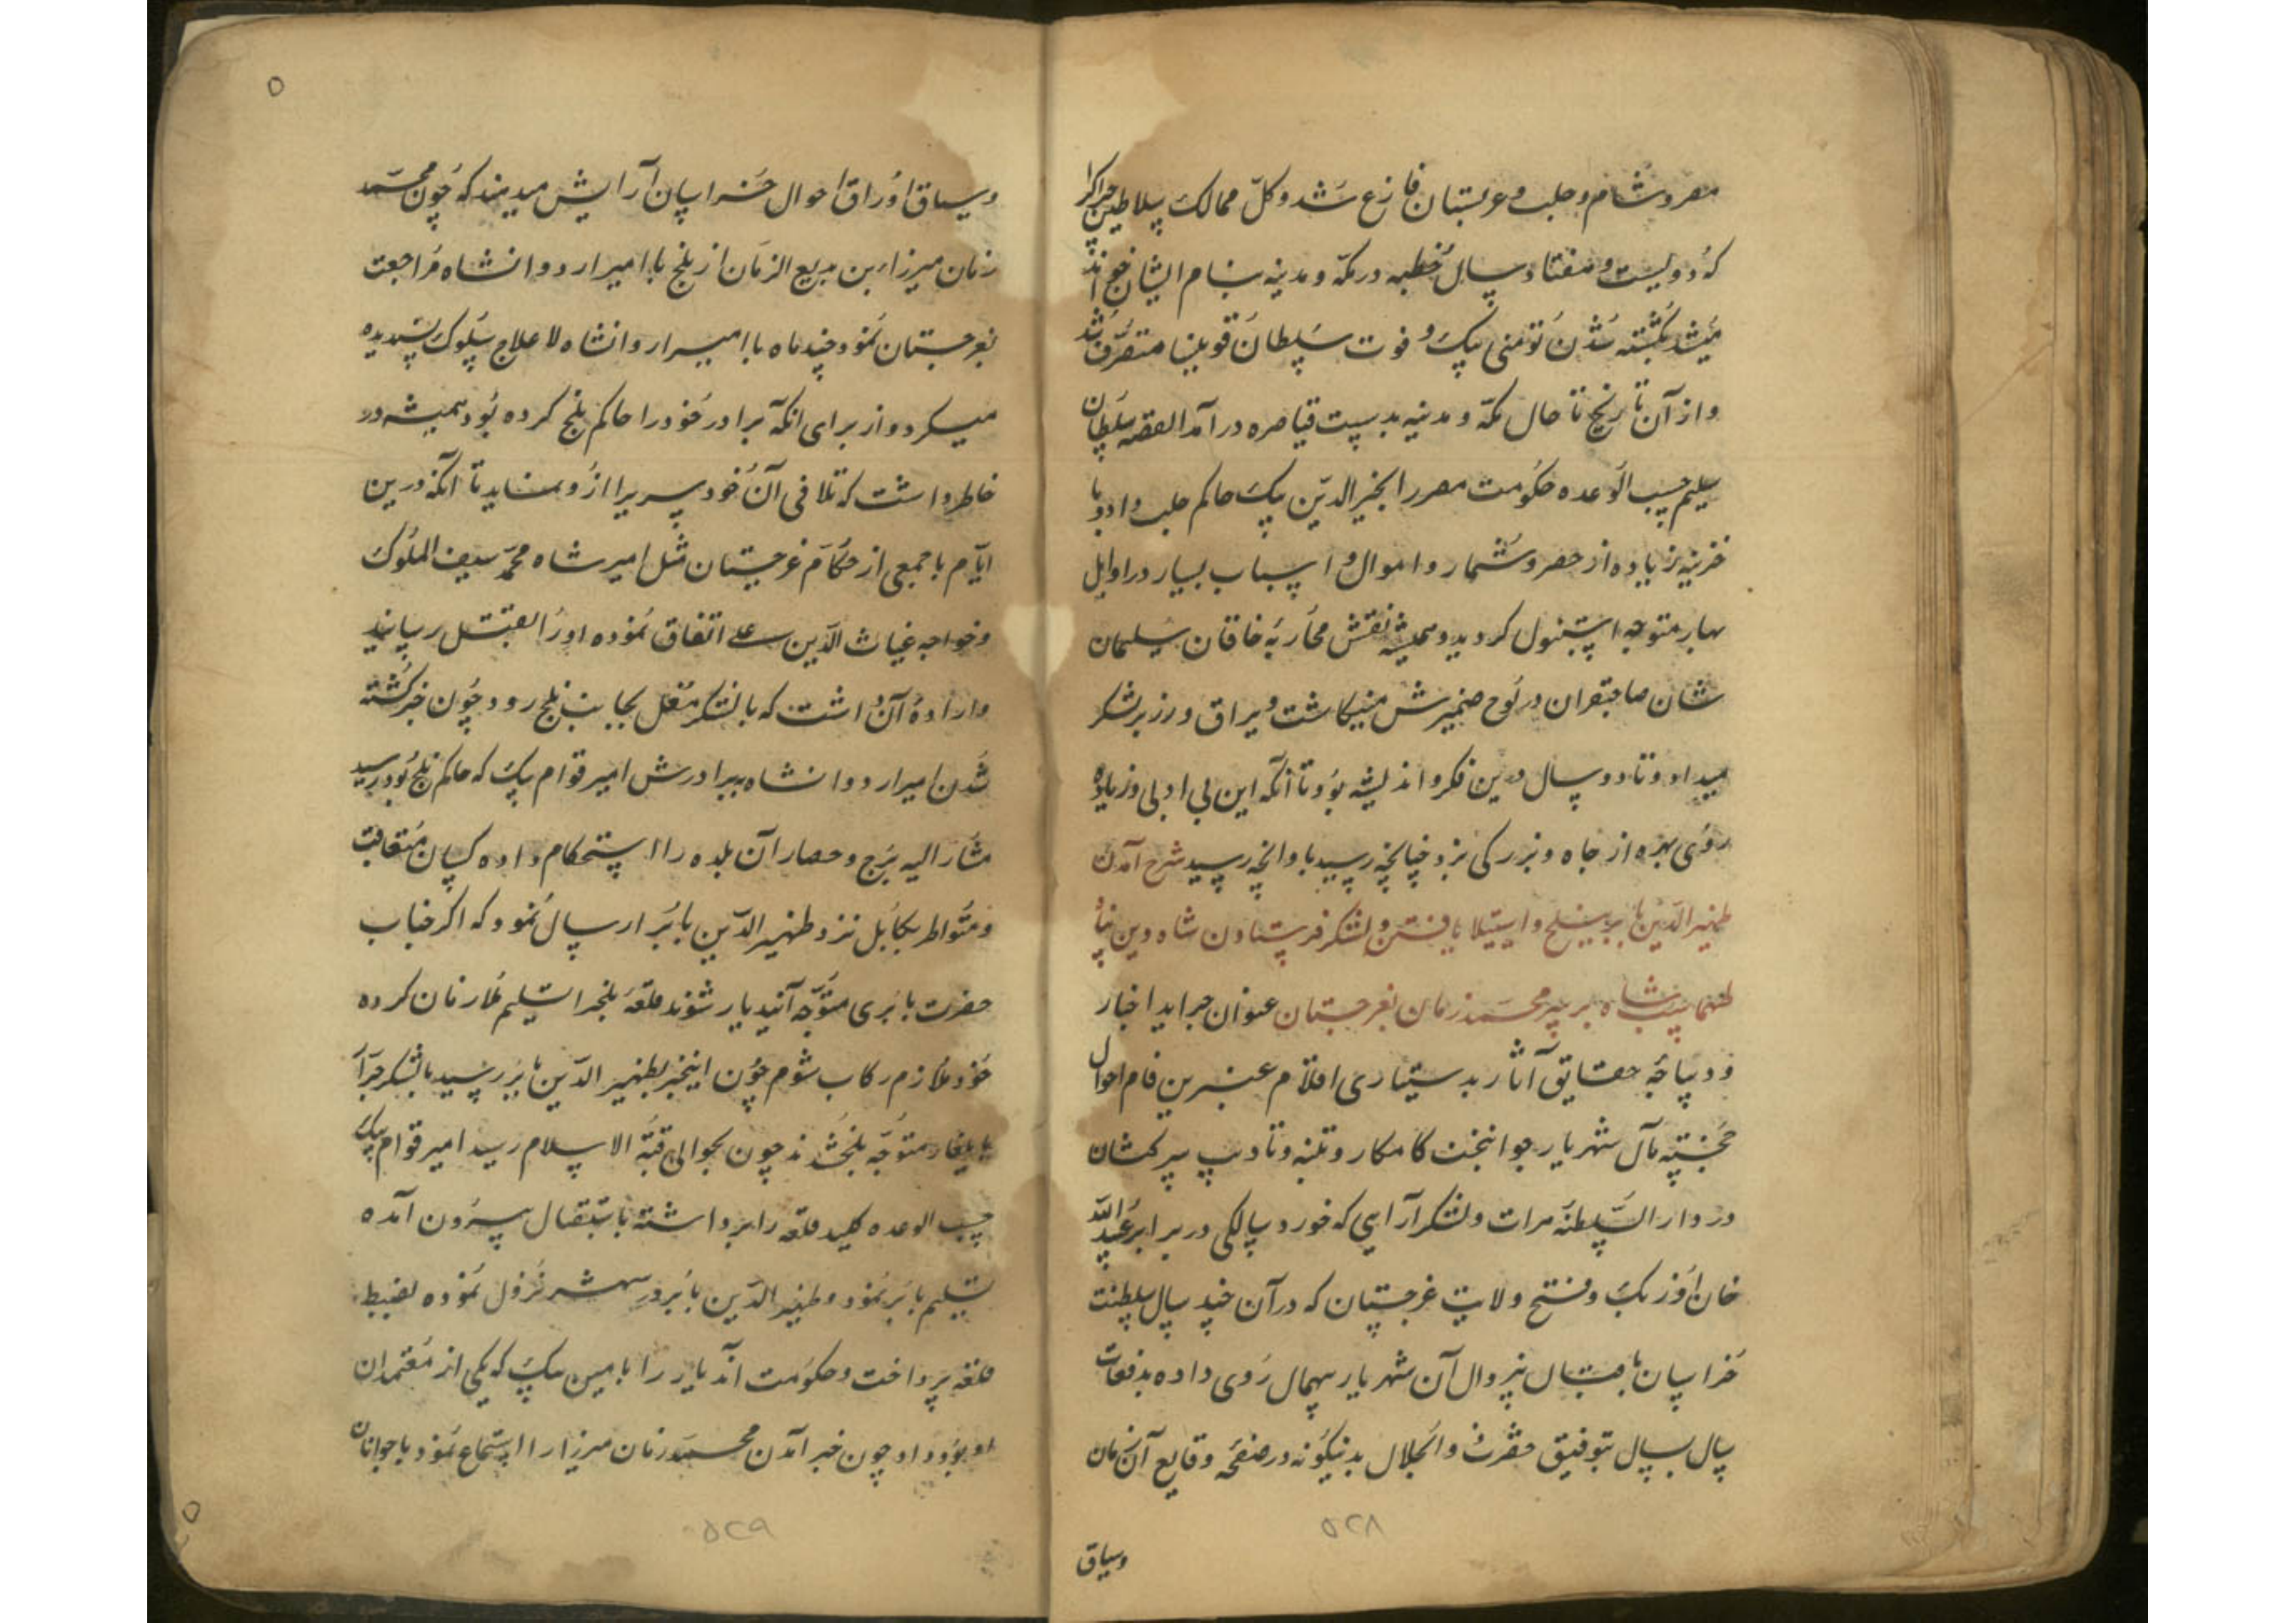 مصر و شام و حلب و عربستان فارغ شد و کل ممالک سلاطین چراکرا
که دولیست و هفتاد سال خطبه در مکه و مدینه بنام ایشان خوانده
میشد بکشته شدن تومنی بیک و فوت سلطان قوینا متصرف شد
و از آن تاریخ تا حال مکه و مدینه بدست قیاصره در آمد القصه سلطان
سلیم حسب الوعده حکومت مصر را بخیر الدین بیک حاکم حلب داد و با
خزینه زیاده از حصر و شمار و اموال و اسباب بسیار در اوایل
بهار متوجه استنبول کردید و همیشه نقش محاربه خاقان سلیمان
شان صاحبقران در لوح ضمیرش مینکاشت و یراق و زر بر لشکر
میداد و تا دو سال درین فکر و اندیشه بود تا آنکه این بی ادبی و زیاده
روی بهره از جاه و بزرکی نبرد چنانچه رسید باو انچه رسید شرح آمدن
ظهیر الدین بابر ببلخ و استیلا یافتن و لشکر فرستادن شاه دین پناه
طهماسب شاه بر سر محمد زمان بغرجستان عنوان جراید اخبار
و دیباچهٔ حقایق آثار بدستیاری اقلام عنبرین فام احوال
خجسته مآل شهریار جوانبخت کامکار و تنبه و تادیب سرکشان
در دار السلطنه هرات و لشکر آرایی که خورد سالکی در برابر عبید الله
خان اوزبک و فتح ولایت غرجستان که در آن چند سال سلطنت
خراسان باقبال بیزوال آن شهریار بیهمال روی داده بدفعات
سال بسال بتوفیق حضرت ذوالجلال بدینکونه در صفحه وقایع آن زمان
وسیاق
۵۲۸
وسیاق اوراق احوال خراسان آرایش میدهند که چون محمد
زمان میرزا بن بدیع الزمان از بلخ با امیر اردوانشاه مراجعت
بغرجستان نمود چند ماه با امیر اردوانشاه لاعلاج سلوک پسندیده
میکرد و از برای انکه برادر خود را حاکم بلخ کرده بود همیشه در
خاطر داشت که تلافی آن خودسریرا ازو نماید تا آنکه درین
ایام با جمعی از حکام غرجستان مثل امیر شاه محمد سیف الملوک
و خواجه غیاث الدین علی اتفاق نموده او را بقتل رسانید
و ارادهٔ آن داشت که با لشکر مغل بجانب بلخ رود چون خبر کشته
شدن امیر اردوانشاه ببرادرش امیر قوام بیک که حاکم بلخ بود رسید
مشار الیه برج و حصار آن بلده را استحکام داده کسان متعاقب
و متواطر بکابل نزد ظهیر الدین بابر ارسال نمود که اکر جناب
حضرت بابری متوجه آنید یار شوند قلعهٔ بلخرا تسلیم ملازمان کرده
خود ملازم رکاب شوم چون اینخبر بظهیر الدین بابر رسید با لشکر جرار
بایلغار متوجه بلخ شدند چون بحوالی قبة الاسلام رسید امیر قوام بیک
حسب الوعده کلید قلعه را برداشته باستقبال بیرون آمده
تسلیم بابر نمود و ظهیر الدین بابر در شهر نزول نموده بضبط
قلعه پرداخت و حکومت آندیار را بامین بیک که یکی از معتمدان
او بود داد چون خبر آمدن محمد زمان میرزا را استماع نمود با جوانان
۵۲۹